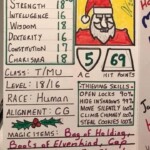 STRENGTH 18
INTELLIGENCE 16
WISDOM 18
DEXTERITY 16
CONSTITUTION 17
CHARISMA 18
5
69
AC
HIT POINTS
CLASS: T/MU
LEVEL: 18/16
RACE: Human
ALIGNMENT: CG
THIEVING SKILLS
OPEN LOCKS 90%
HIDE IN SHADOWS
MOVE SILENTLY
CLIMB CHIMNEYS
STEAL COOKIES
MAGIC ITEMS: Bag of Holding,
Boots of Elvenkind, Cap